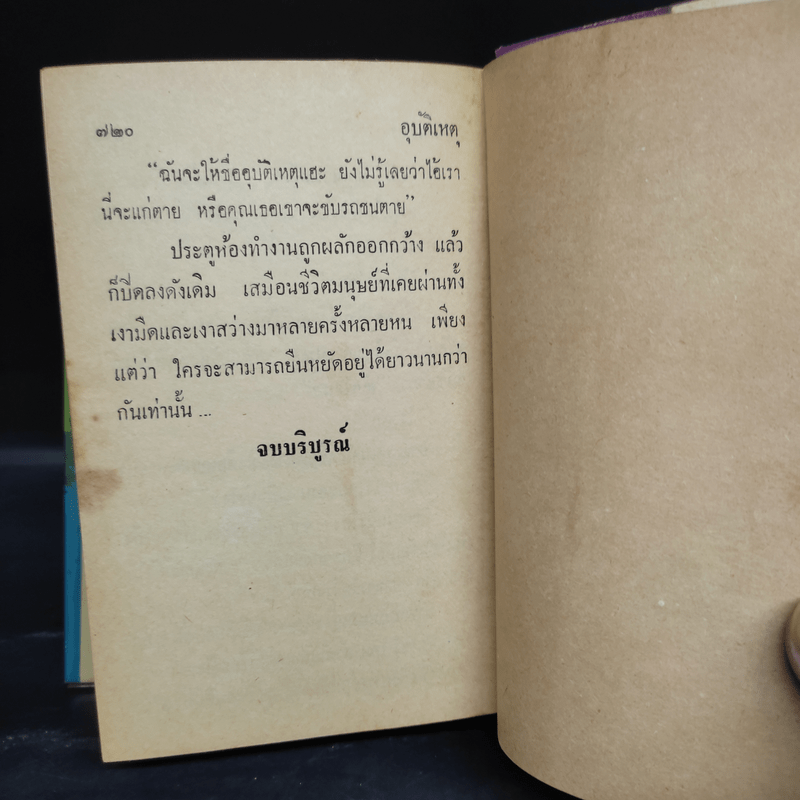 ๗๒๐ อุบัติเหตุ
“ฉันจะให้ชื่ออุบัติเหตุแฮะ ยังไม่รู้เลยว่าไอ้เรา
นี่จะแก่ตาย หรือคุณเธอเขาจะขับรถชนตาย”
ประตูห้องทำงานถูกผลักออกกว้าง แล้ว
ก็ปิดลงดังเดิม เสมือนชีวิตมนุษย์ที่เคยผ่านทั้ง
เงามืดและเงาสว่างมาหลายครั้งหลายหน เพียง
แต่ว่า ใครจะสามารถยืนหยัดอยู่ได้ยาวนานกว่า
กันเท่านั้น ...
จบบริบูรณ์